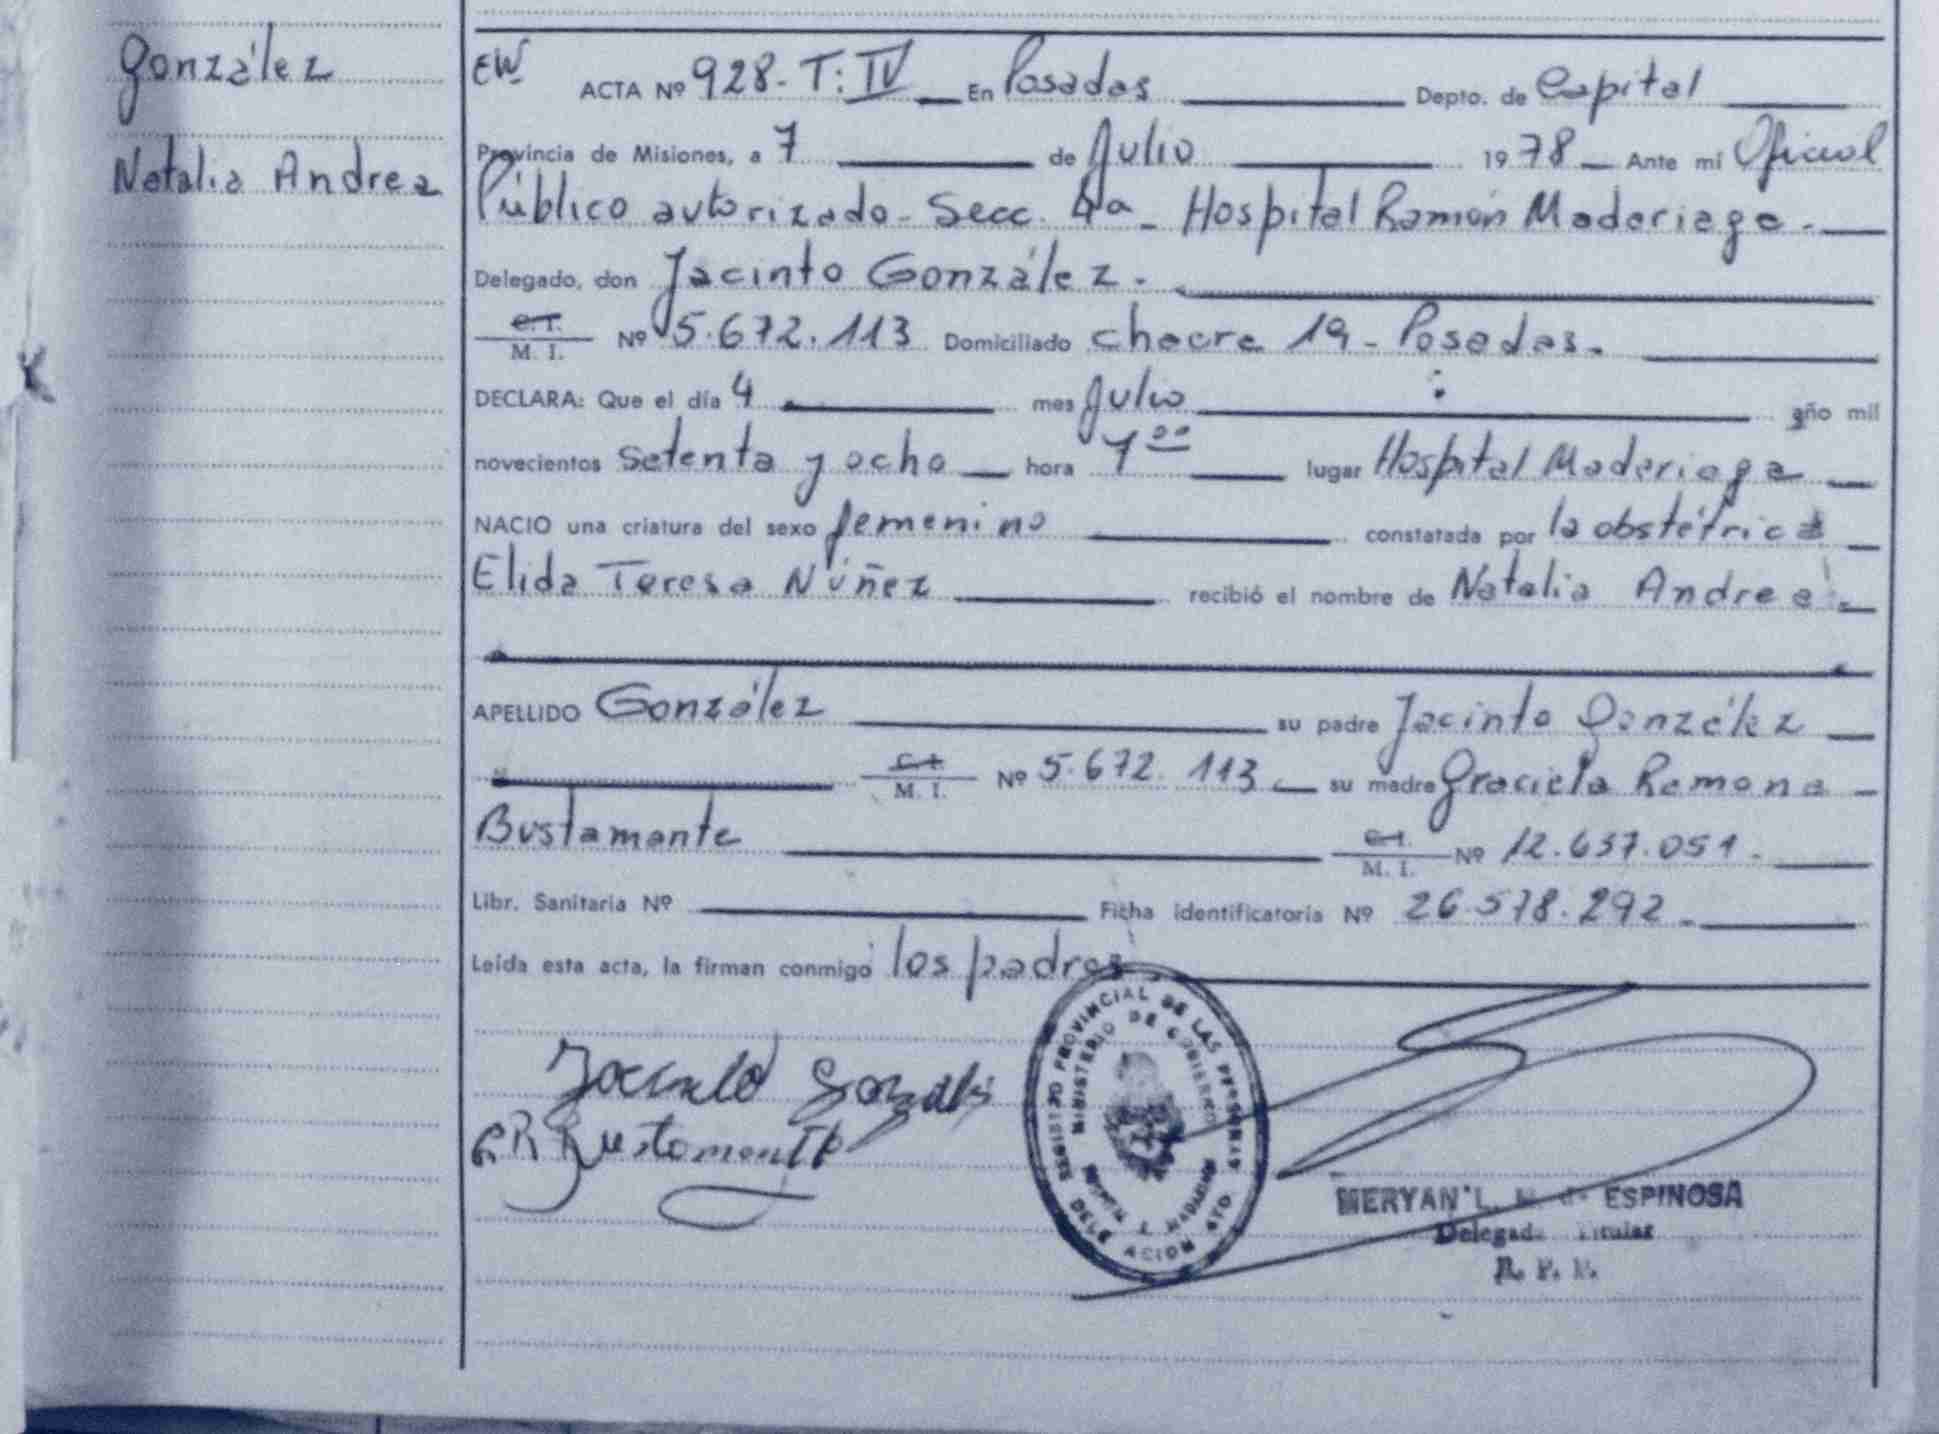 González
Natalia Andrea
EW ACTA Nº 928- T: IV En Posadas Depto. de Capital
Provincia de Misiones, a 7 de Julio 1978 Ante mí Oficial
Público autorizado- Secc. 4a- Hospital Ramón Madariaga.
Delegado, don Jacinto González.
C.I. M. I. Nº 5.672.113 Domiciliado chacra 19- Posadas.
DECLARA: Que el día 4 mes Julio año mil
novecientos setenta y ocho hora 7 00 lugar Hospital Madariaga
NACIO una criatura del sexo femenino constatada por la obstétrica
Elida Teresa Núñez recibió el nombre de Natalia Andrea.
APELLIDO González su padre Jacinto González
C.I. M. I. Nº 5.672.113 su madre Graciela Ramona
Bustamante C.I. M. I. Nº 12.637.051.
Libr. Sanitaria Nº Ficha identificatoria Nº 26.578.292
Leída esta acta, la firman conmigo los padres
REGISTRO PROVINCIAL DE LAS PERSONAS
MINISTERIO DE GOBIERNO
DELEGACION 4TO
Jacinto Gonzales
G R Bustamante
MERYAN L. ESPINOSA
Delegada Titular
R. P. P.